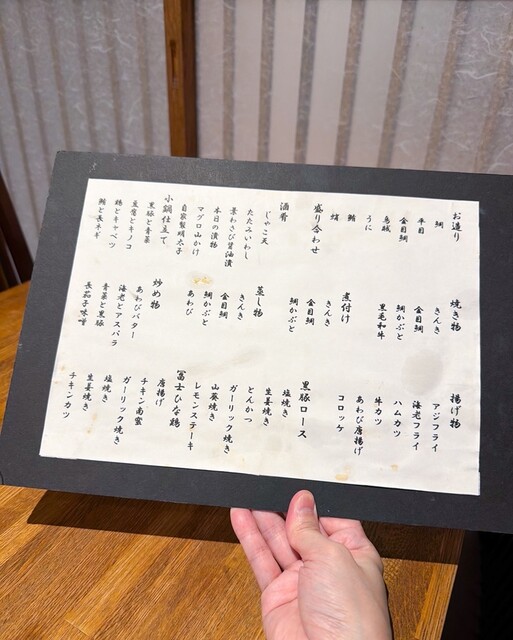 お造り
鯛
平目
金目鯛
烏賊
うに
鮪
蛸
盛り合わせ
酒肴
じゃこ天
たたみいわし
葉わさび醤油漬
本日の漬物
マグロ山かけ
自家製明太子
小鍋仕立て
黒豚と青菜
豆腐とキノコ
鶏とキャベツ
鮪と長ネギ
焼き物
きんき
金目鯛
鯛かぶと
黒毛和牛
煮付け
きんき
金目鯛
鯛かぶと
蒸し物
きんき
金目鯛
鯛かぶと
あわび
炒め物
あわびバター
海老とアスパラ
青菜と黒豚
長茄子味噌
揚げ物
アジフライ
海老フライ
ハムカツ
牛カツ
あわび唐揚げ
コロッケ
黒豚ロース
塩焼き
生姜焼き
とんかつ
ガーリック焼き
山葵焼き
レモンステーキ
冨士ひな鶏
唐揚げ
チキン南蛮
ガーリック焼き
塩焼き
生姜焼き
チキンカツ